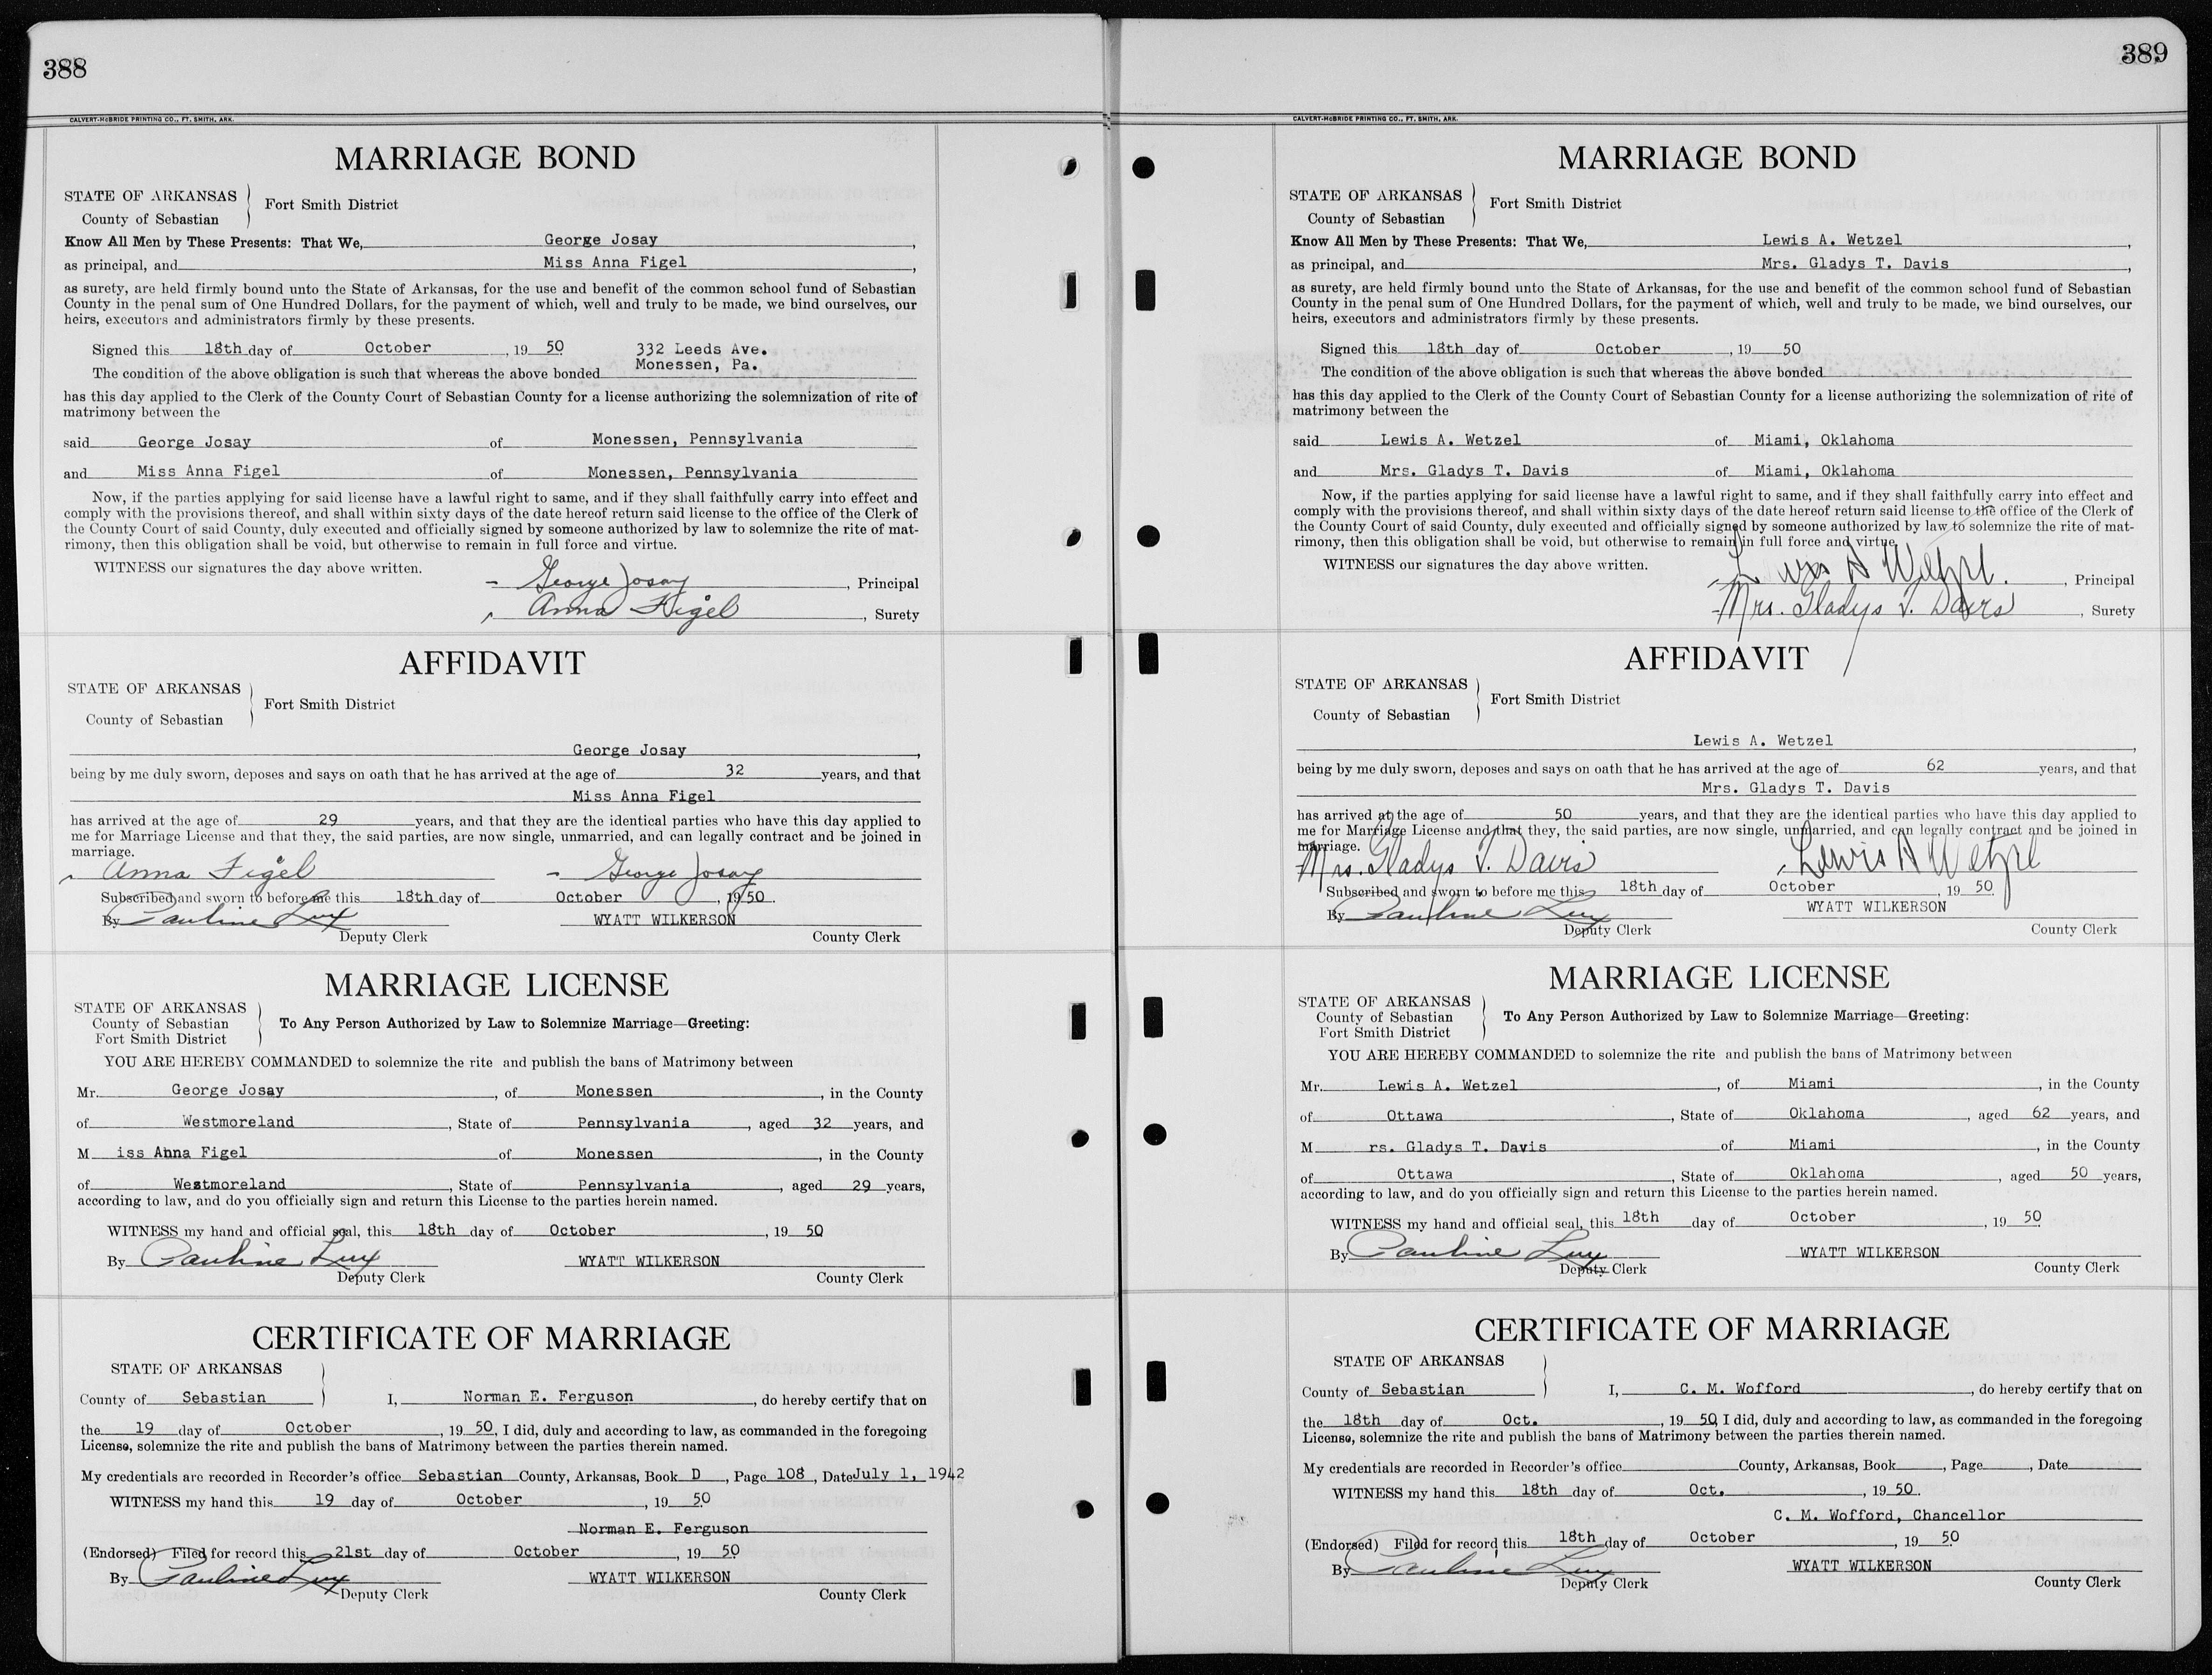 388
CALVERT-McBRIDE PRINTING CO., FT. SMITH, ARK.
MARRIAGE BOND
STATE OF ARKANSAS
County of Sebastian
Fort Smith District
Know All Men by These Presents: That We, George Josay,
as principal, and Miss Anna Figel,
as surety, are held firmly bound unto the State of Arkansas, for the use and benefit of the common school fund of Sebastian
County in the penal sum of One Hundred Dollars, for the payment of which, well and truly to be made, we bind ourselves, our
heirs, executors and administrators firmly by these presents.
Signed this 18th day of October, 19 50 332 Leeds Ave.
The condition of the above obligation is such that whereas the above bonded Monessen, Pa.
has this day applied to the Clerk of the County Court of Sebastian County for a license authorizing the solemnization of rite of
matrimony between the
said George Josay of Monessen, Pennsylvania
and Miss Anna Figel of Monessen, Pennsylvania
Now, if the parties applying for said license have a lawful right to same, and if they shall faithfully carry into effect and
comply with the provisions thereof, and shall within sixty days of the date hereof return said license to the office of the Clerk of
the County Court of said County, duly executed and officially signed by someone authorized by law to solemnize the rite of mat-
rimony, then this obligation shall be void, but otherwise to remain in full force and virtue.
WITNESS our signatures the day above written.
George Josay, Principal
Anna Figel, Surety
AFFIDAVIT
STATE OF ARKANSAS
County of Sebastian
Fort Smith District
George Josay,
being by me duly sworn, deposes and says on oath that he has arrived at the age of 32 years, and that
Miss Anna Figel
has arrived at the age of 29 years, and that they are the identical parties who have this day applied to
me for Marriage License and that they, the said parties, are now single, unmarried, and can legally contract and be joined in
marriage.
Anna Figel George Josay
Subscribed and sworn to before me this 18th day of October, 19 50.
By Pauline Lux WYATT WILKERSON
Deputy Clerk County Clerk
MARRIAGE LICENSE
STATE OF ARKANSAS
County of Sebastian
Fort Smith District
To Any Person Authorized by Law to Solemnize Marriage—Greeting:
YOU ARE HEREBY COMMANDED to solemnize the rite and publish the bans of Matrimony between
Mr. George Josay, of Monessen, in the County
of Westmoreland, State of Pennsylvania, aged 32 years, and
M iss Anna Figel of Monessen, in the County
of Westmoreland, State of Pennsylvania, aged 29 years,
according to law, and do you officially sign and return this License to the parties herein named.
WITNESS my hand and official seal, this 18th day of October, 19 50
By Pauline Lux WYATT WILKERSON
Deputy Clerk County Clerk
CERTIFICATE OF MARRIAGE
STATE OF ARKANSAS
County of Sebastian I, Norman E. Ferguson, do hereby certify that on
the 19 day of October, 19 50, I did, duly and according to law, as commanded in the foregoing
License, solemnize the rite and publish the bans of Matrimony between the parties therein named.
My credentials are recorded in Recorder's office Sebastian County, Arkansas, Book D, Page 108, Date July 1, 1942
WITNESS my hand this 19 day of October, 19 50
Norman E. Ferguson
(Endorsed) Filed for record this 21st day of October, 19 50
By Pauline Lux WYATT WILKERSON
Deputy Clerk County Clerk
389
CALVERT-McBRIDE PRINTING CO., FT. SMITH, ARK.
MARRIAGE BOND
STATE OF ARKANSAS
County of Sebastian
Fort Smith District
Know All Men by These Presents: That We, Lewis A. Wetzel,
as principal, and Mrs. Gladys T. Davis,
as surety, are held firmly bound unto the State of Arkansas, for the use and benefit of the common school fund of Sebastian
County in the penal sum of One Hundred Dollars, for the payment of which, well and truly to be made, we bind ourselves, our
heirs, executors and administrators firmly by these presents.
Signed this 18th day of October, 19 50
The condition of the above obligation is such that whereas the above bonded
has this day applied to the Clerk of the County Court of Sebastian County for a license authorizing the solemnization of rite of
matrimony between the
said Lewis A. Wetzel of Miami, Oklahoma
and Mrs. Gladys T. Davis of Miami, Oklahoma
Now, if the parties applying for said license have a lawful right to same, and if they shall faithfully carry into effect and
comply with the provisions thereof, and shall within sixty days of the date hereof return said license to the office of the Clerk of
the County Court of said County, duly executed and officially signed by someone authorized by law to solemnize the rite of mat-
rimony, then this obligation shall be void, but otherwise to remain in full force and virtue.
WITNESS our signatures the day above written.
Lewis A Wetzel, Principal
Mrs. Gladys T. Davis, Surety
AFFIDAVIT
STATE OF ARKANSAS
County of Sebastian
Fort Smith District
Lewis A. Wetzel,
being by me duly sworn, deposes and says on oath that he has arrived at the age of 62 years, and that
Mrs. Gladys T. Davis
has arrived at the age of 50 years, and that they are the identical parties who have this day applied to
me for Marriage License and that they, the said parties, are now single, unmarried, and can legally contract and be joined in
marriage.
Mrs. Gladys T. Davis Lewis A Wetzel
Subscribed and sworn to before me this 18th day of October, 19 50
By Pauline Lux WYATT WILKERSON
Deputy Clerk County Clerk
MARRIAGE LICENSE
STATE OF ARKANSAS
County of Sebastian
Fort Smith District
To Any Person Authorized by Law to Solemnize Marriage—Greeting:
YOU ARE HEREBY COMMANDED to solemnize the rite and publish the bans of Matrimony between
Mr. Lewis A. Wetzel, of Miami, in the County
of Ottawa, State of Oklahoma, aged 62 years, and
M rs. Gladys T. Davis of Miami, in the County
of Ottawa, State of Oklahoma, aged 50 years,
according to law, and do you officially sign and return this License to the parties herein named.
WITNESS my hand and official seal, this 18th day of October, 19 50
By Pauline Lux WYATT WILKERSON
Deputy Clerk County Clerk
CERTIFICATE OF MARRIAGE
STATE OF ARKANSAS
County of Sebastian I, C. M. Wofford, do hereby certify that on
the 18th day of Oct., 19 50, I did, duly and according to law, as commanded in the foregoing
License, solemnize the rite and publish the bans of Matrimony between the parties therein named.
My credentials are recorded in Recorder's office County, Arkansas, Book, Page, Date
WITNESS my hand this 18th day of Oct., 19 50.
C. M. Wofford, Chancellor
(Endorsed) Filed for record this 18th day of October, 19 50
By Pauline Lux WYATT WILKERSON
Deputy Clerk County Clerk